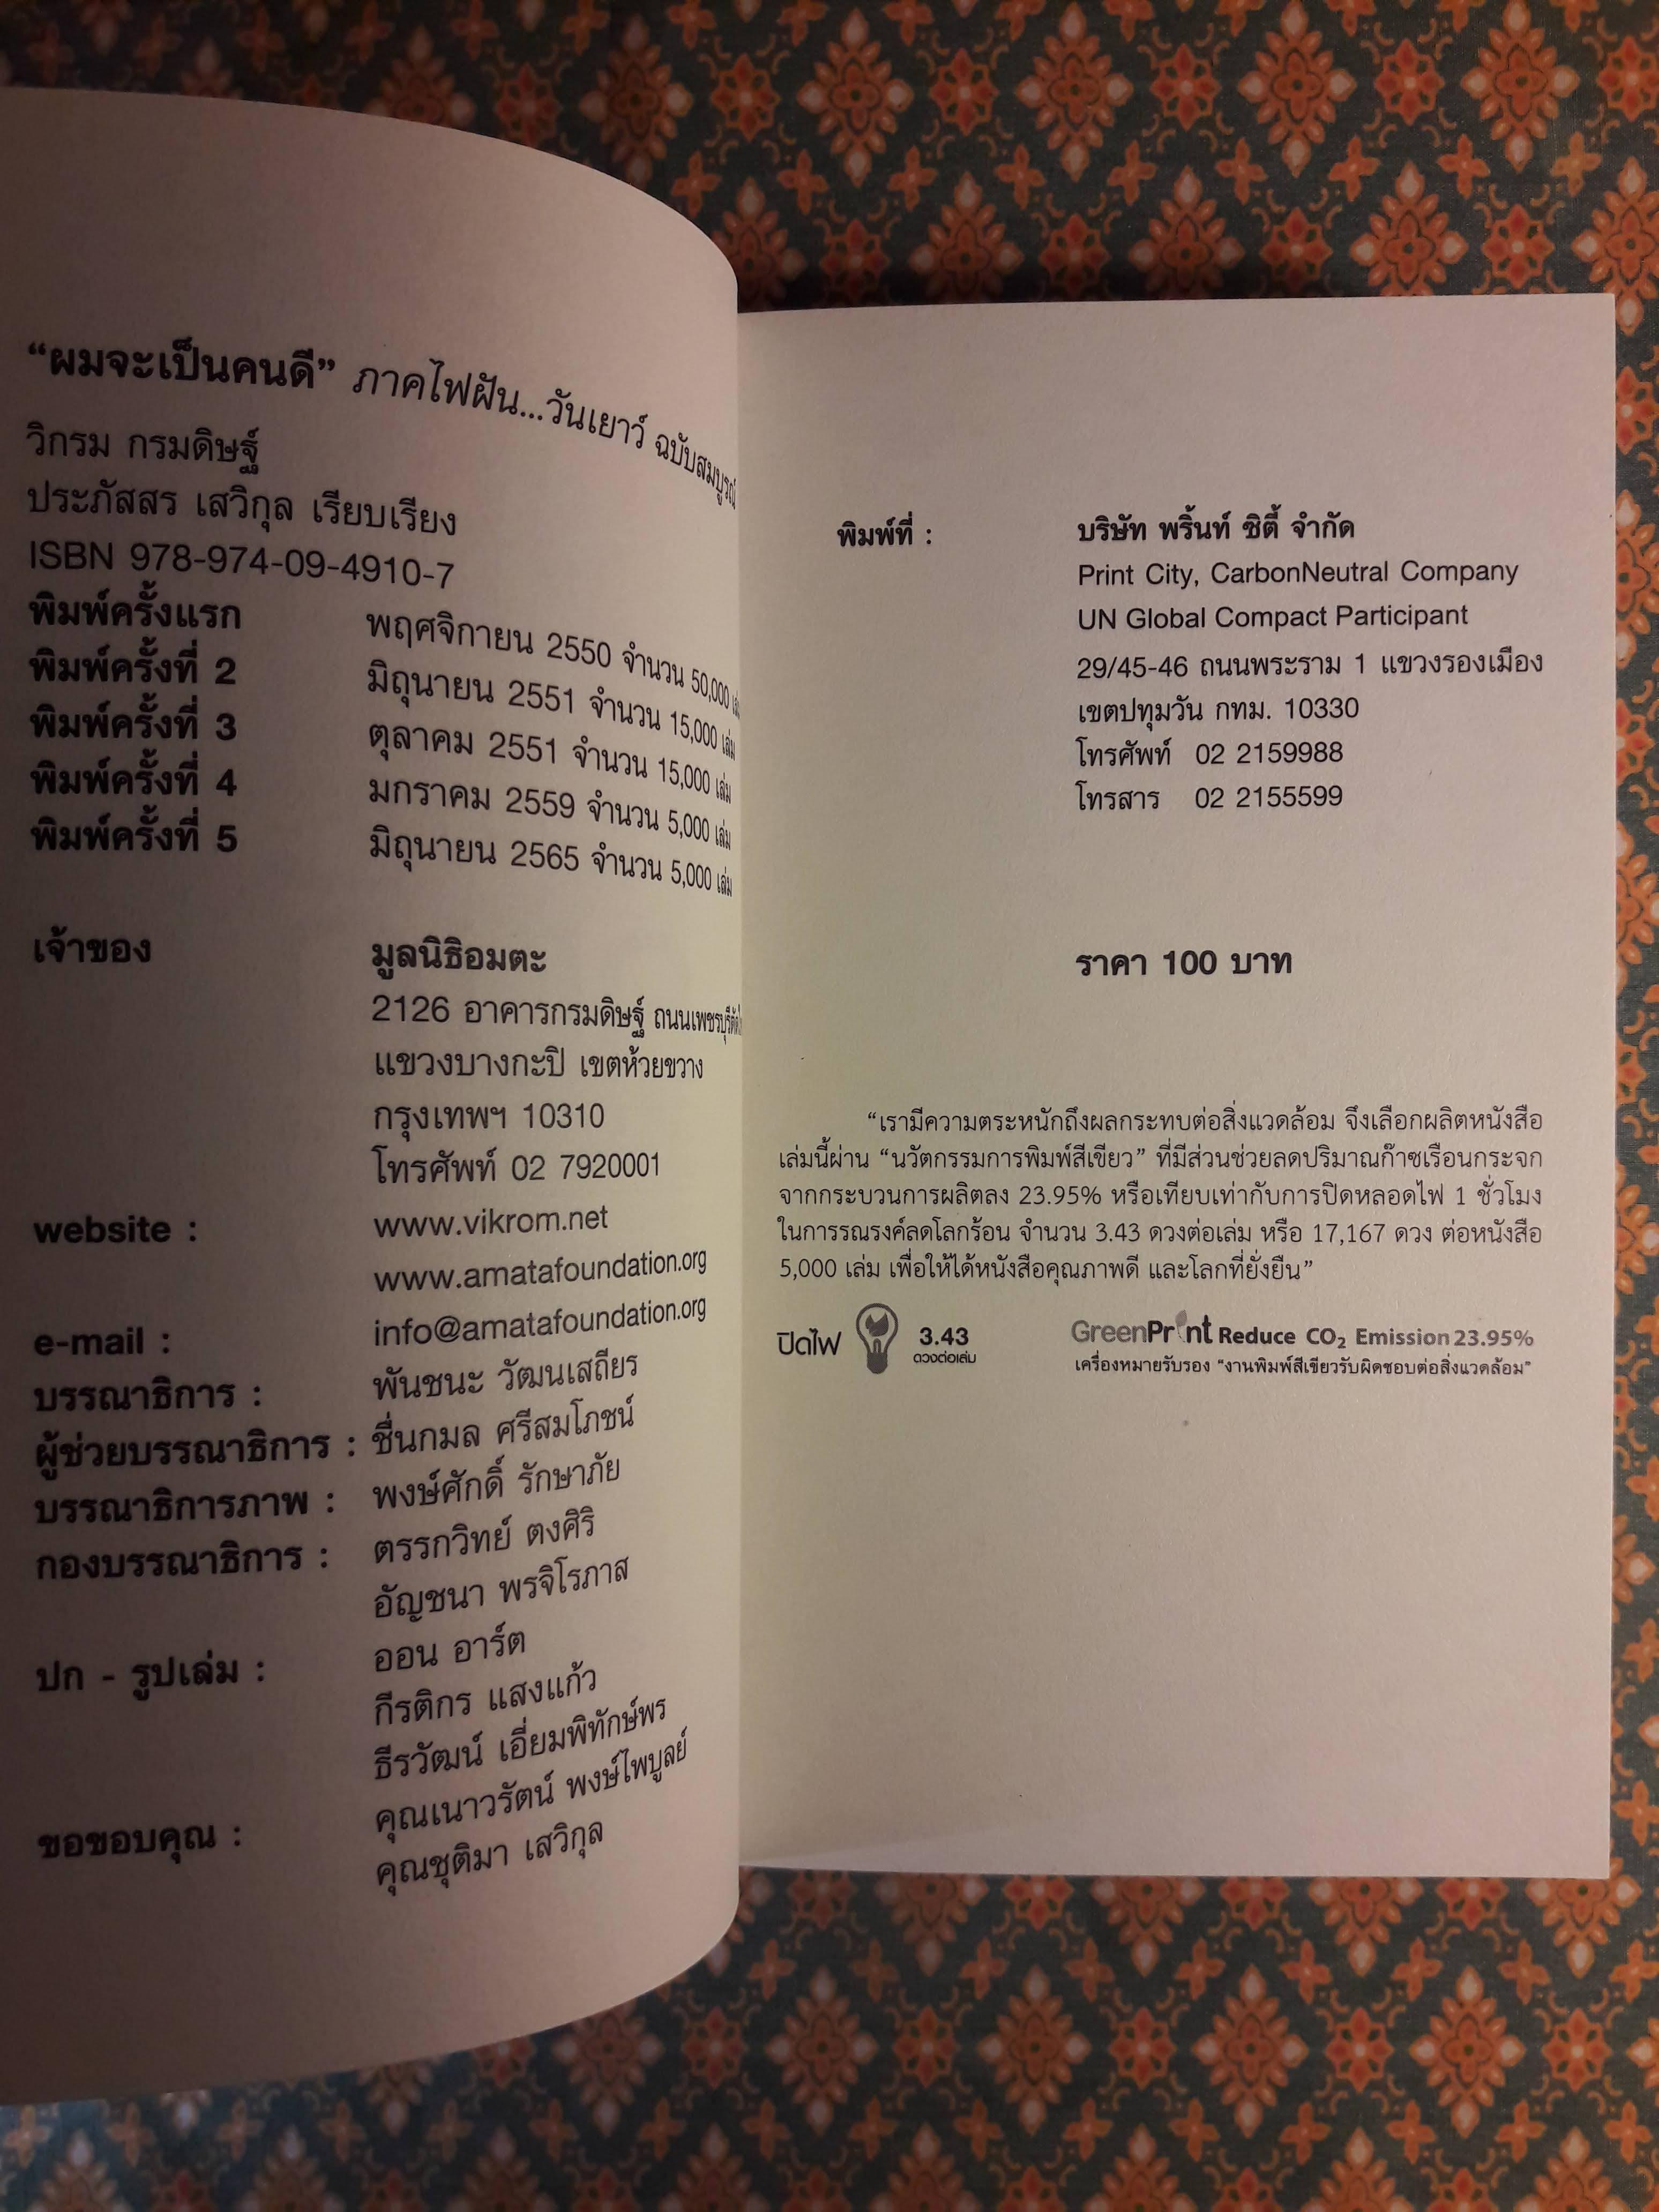 “ผมจะเป็นคนดี” ภาคไฟฝัน...วันเยาว์ ฉบับสมบูรณ์
วิกรม กรมดิษฐ์
ประภัสสร เสวิกุล เรียบเรียง
ISBN 978-974-09-4910-7
พิมพ์ครั้งแรก พฤศจิกายน 2550 จำนวน 50,000
พิมพ์ครั้งที่ 2 มิถุนายน 2551 จำนวน 15,000 เล่ม
พิมพ์ครั้งที่ 3 ตุลาคม 2551 จำนวน 15,000 เล่ม
พิมพ์ครั้งที่ 4 มกราคม 2559 จำนวน 5,000 เล่ม
พิมพ์ครั้งที่ 5 มิถุนายน 2565 จำนวน 5,000 เล่ม
เจ้าของ มูลนิธิอมตะ
2126 อาคารกรมดิษฐ์
แขวงบางกะปิ เขตห้วยขวาง
กรุงเทพฯ 10310
โทรศัพท์ 02 7920001
website : www.vikrom.net
www.amatafoundation.org
e-mail : info@amatafoundation.org
บรรณาธิการ : พันชนะ วัฒนเสถียร
ผู้ช่วยบรรณาธิการ : ชื่นกมล ศรีสมโภชน์
บรรณาธิการภาพ : พงษ์ศักดิ์ รักษาภัย
กองบรรณาธิการ : ตรรกวิทย์ ตงศิริ
อัญชนา พรจิโรภาส
ปก - รูปเล่ม : ออน อาร์ต
กีรติกร แสงแก้ว
ธีรวัฒน์ เอี่ยมพิทักษ์พร
ขอขอบคุณ : คุณเนาวรัตน์ พงษ์ไพบูลย์
คุณชุติมา เสวิกุล
พิมพ์ที่ : บริษัท พริ้นท์ ซิตี้ จำกัด
Print City, CarbonNeutral Company
UN Global Compact Participant
29/45-46 ถนนพระราม 1 แขวงรองเมือง
เขตปทุมวัน กทม. 10330
โทรศัพท์ 02 2159988
โทรสาร 02 2155599
ราคา 100 บาท
“เรามีความตระหนักถึงผลกระทบต่อสิ่งแวดล้อม จึงเลือกผลิตหนังสือ
เล่มนี้ผ่าน “นวัตกรรมการพิมพ์สีเขียว” ที่มีส่วนช่วยลดปริมาณก๊าซเรือนกระจก
จากกระบวนการผลิตลง 23.95% หรือเทียบเท่ากับการปิดหลอดไฟ 1 ชั่วโมง
ในการรณรงค์ลดโลกร้อน จำนวน 3.43 ดวงต่อเล่ม หรือ 17,167 ดวง ต่อหนังสือ
5,000 เล่ม เพื่อให้ได้หนังสือคุณภาพดี และโลกที่ยั่งยืน”
ปิดไฟ 3.43
ดวงต่อเล่ม
GreenPrint Reduce CO₂ Emission 23.95%
เครื่องหมายรับรอง “งานพิมพ์สีเขียวรับผิดชอบต่อสิ่งแวดล้อม”